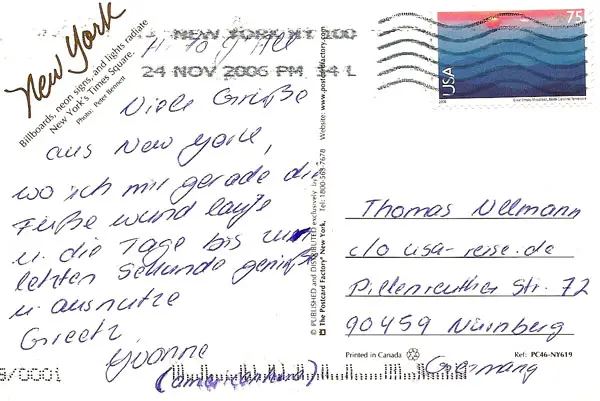 New York
Billboards, neon signs, and lights radiate
New York's Times Square.
Photo: Peter Bennett
NEW YORK NY 100
24 NOV 2006 PM 14 L
Hi to y'all
Viele Grüße
aus New York,
wo ich mir gerade die
Füße wund laufe
u. die Tage bis zur
letzten Sekunde genieße
u. ausnutze
Greetz
Yvonne
(americanhero)
© PUBLISHED and DISTRIBUTED exclusively by
The Postcard Factory® New York, Tel: 1800-568-7678 Website: www.postcardfactory.com
75
USA
2006
Great Smoky Mountains, North Carolina/Tennessee
Thomas Ullmann
c/o usa-reise.de
Pillenreuther Str. 72
90459 Nürnberg
Germany
Printed in Canada
Ref: PC46-NY619
8/0001